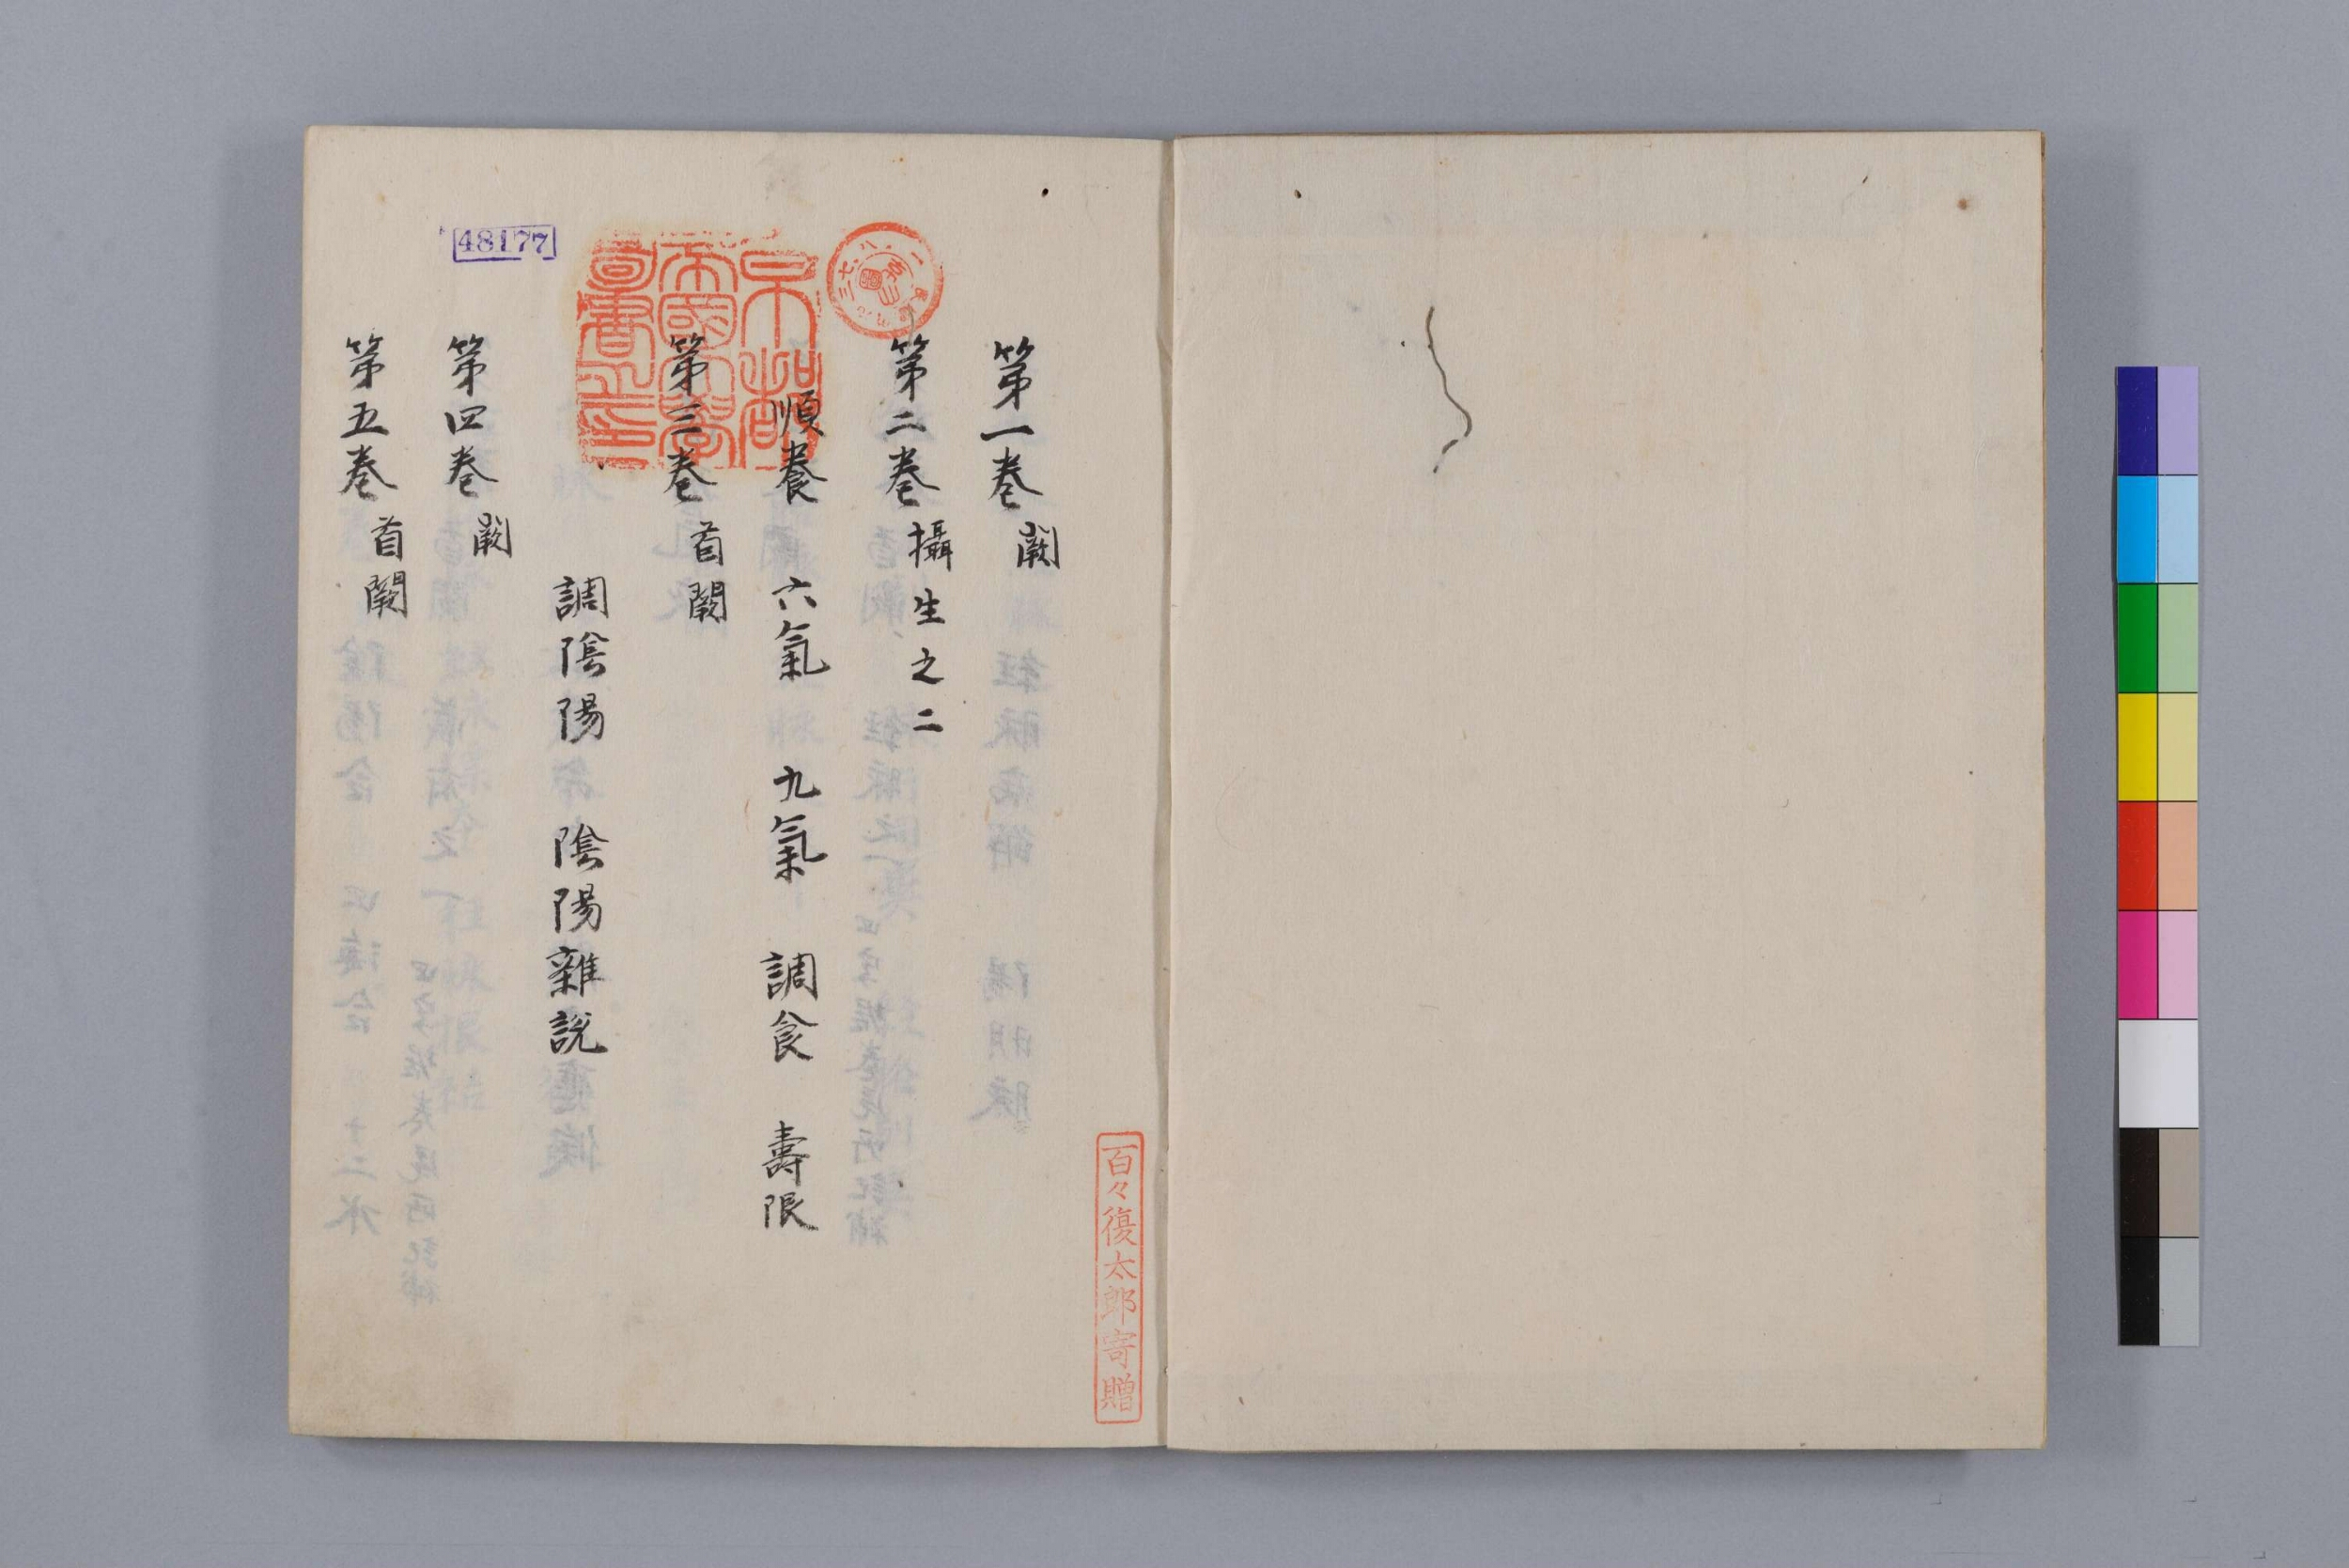 第一巻 闕
第二巻 攝生之二
順養 六氣 九氣 調食 壽限
第三巻 首闕
調陰陽 陰陽雜說
第四巻 闕
第五巻 首闕
京都
帝國大學
圖書之印
48177
百々復太郎寄贈